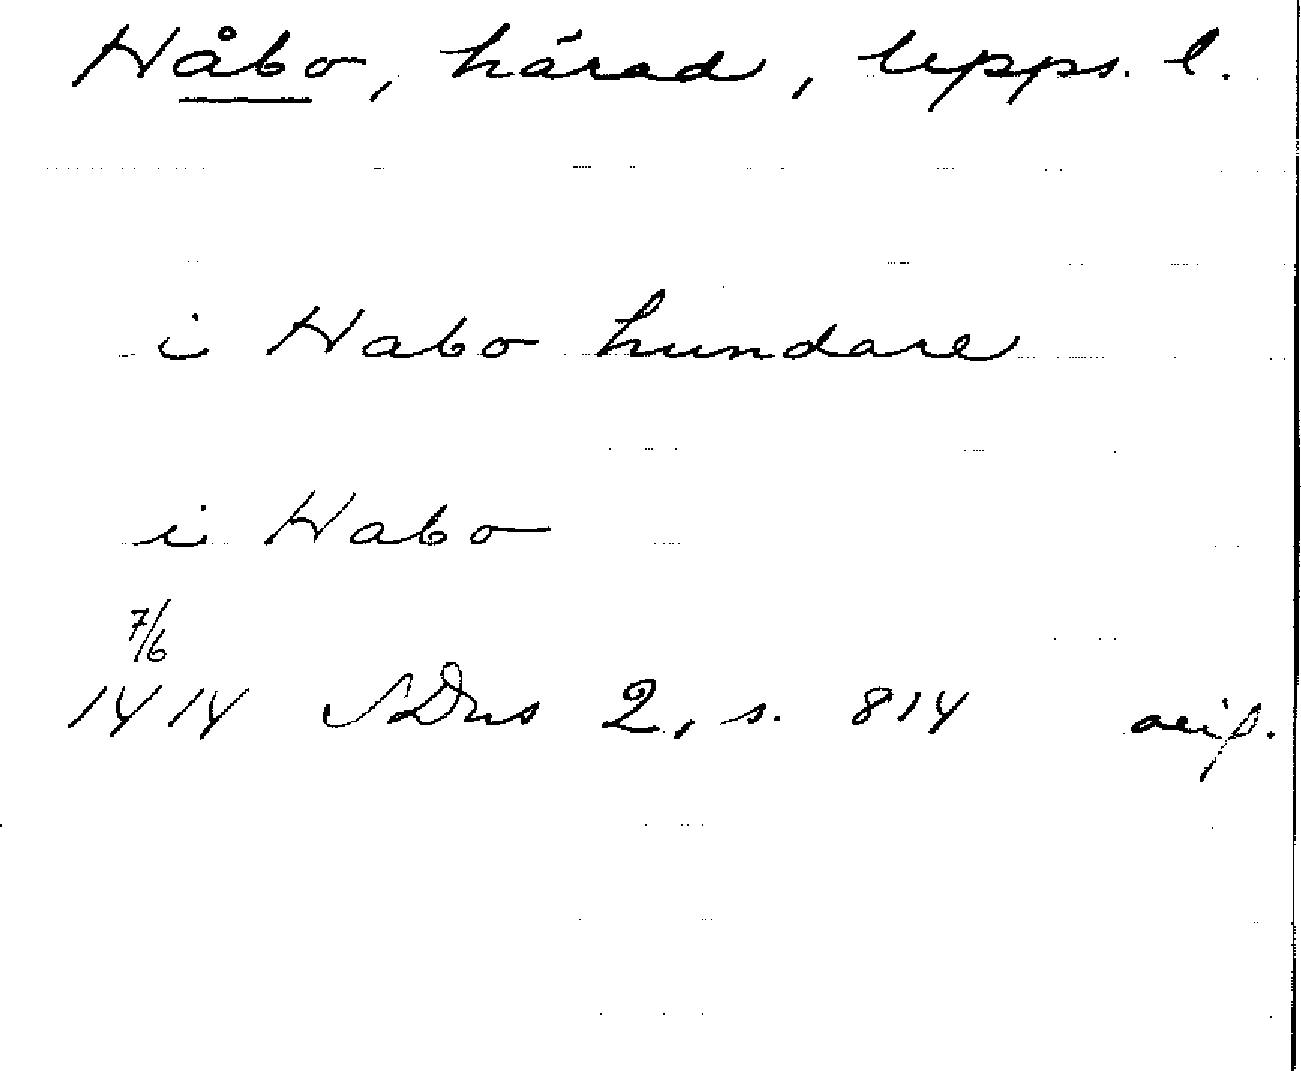 Håbo, härad, Upps. l.
i Habo hundare
i Habo
7/6
1414 SDns 2, s. 814 avskr.